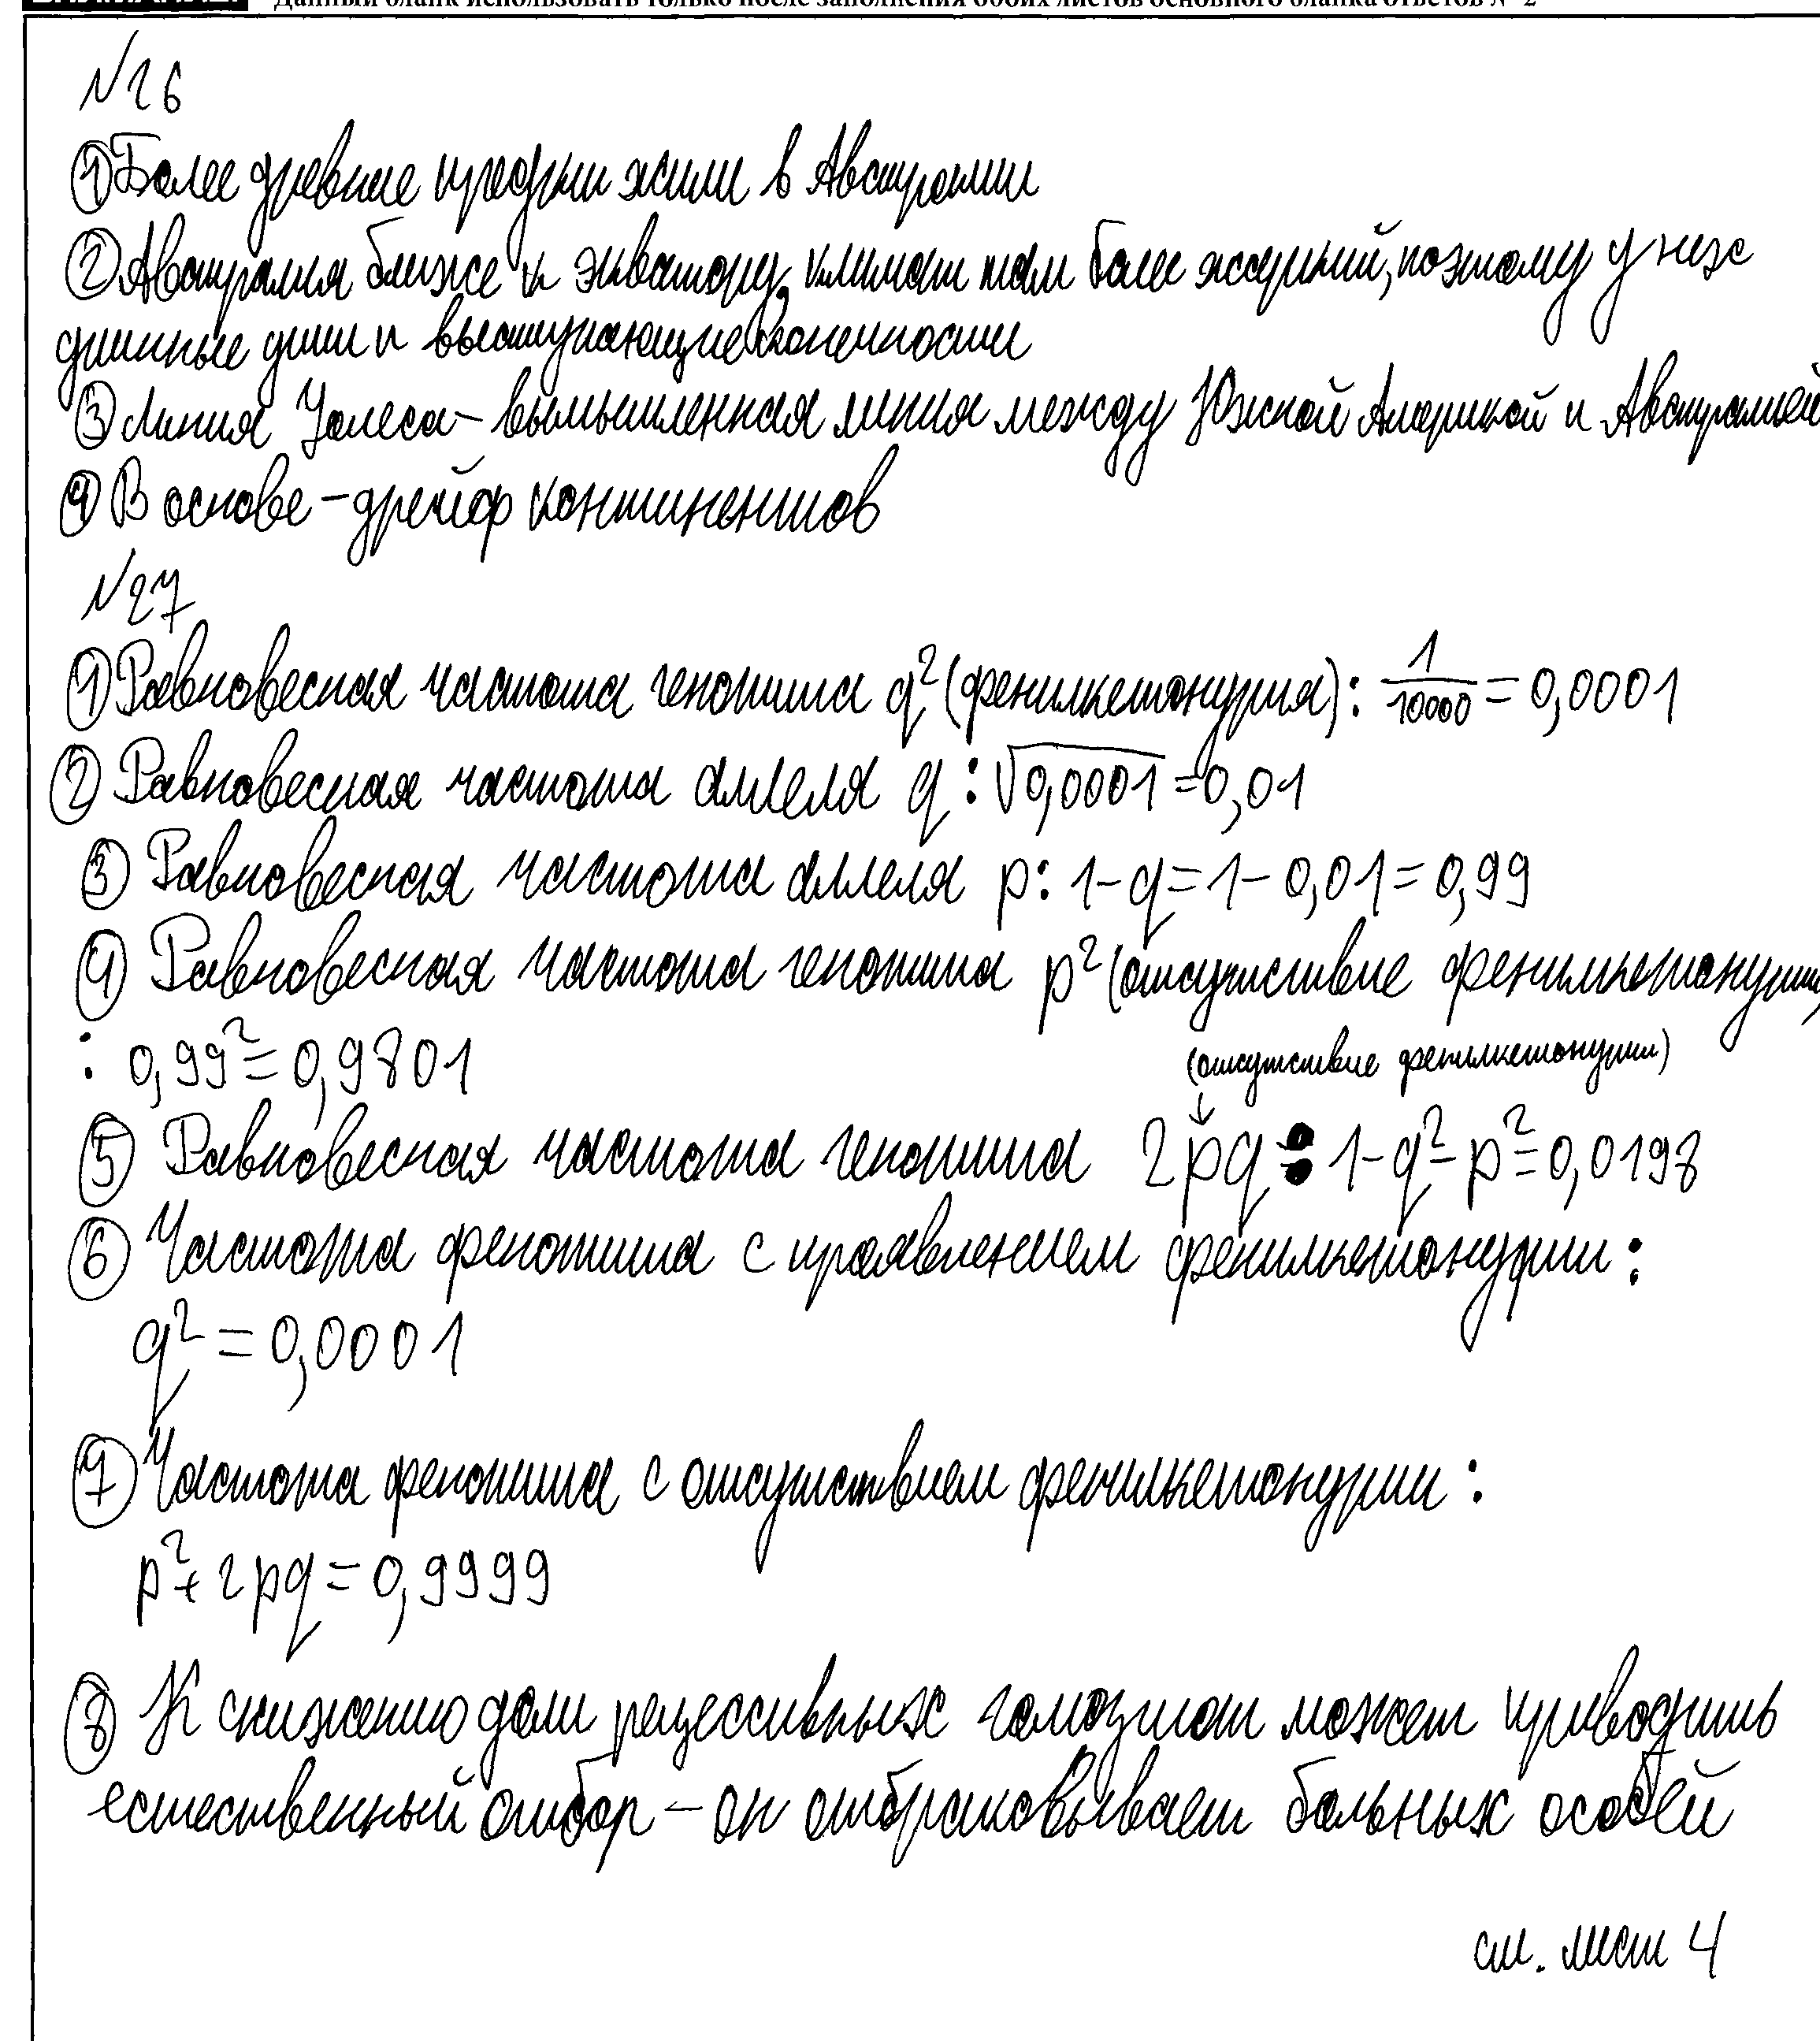 Данный бланк использовать только после заполнения обоих листов основного бланка ответов № 2
№26
① Более древние предки жили в Австралии
② Австралия ближе к экватору, климат там более жаркий, поэтому у них
длинные уши и выступающие конечности
③ Линия Уолеса – вымышленная линия между Южной Америкой и Австралией
④ В основе – дрейф континентов
№27
① Равновесная частота генотипа q² (фенилкетонурия): 1/10000 = 0,0001
② Равновесная частота аллеля q: √0,0001 = 0,01
③ Равновесная частота аллеля p: 1-q=1-0,01=0,99
④ Равновесная частота генотипа p² (отсутствие фенилкетонурии)
: 0,99²=0,9801
(отсутствие фенилкетонурии)
⑤ Равновесная частота генотипа 2pq : 1-q²-p²=0,0198
⑥ Частота фенотипа с проявлением фенилкетонурии:
q² = 0,0001
⑦ Частота фенотипа с отсутствием фенилкетонурии:
p²+2pq=0,9999
⑧ К снижению доли рецессивных гомозигот может приводить
естественный отбор – он отбраковывает больных особей
см. лист 4